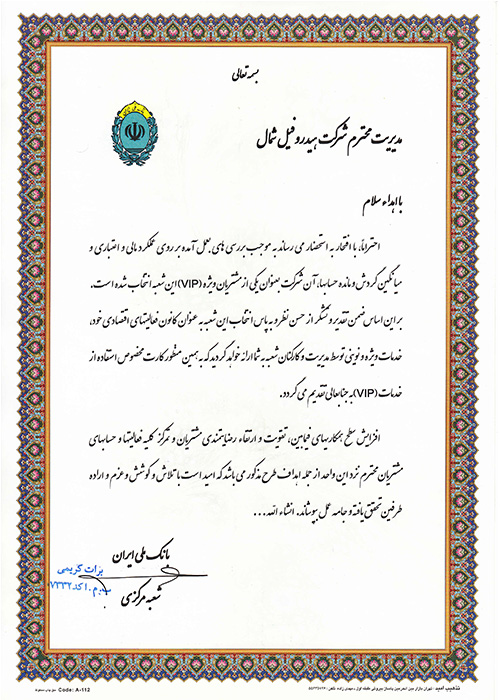 بسمه تعالی
مدیریت محترم شرکت هیدروفیل شمال
با اهداء سلام
احتراماً، با افتخار به استحضار می رساند به موجب بررسی های بعمل آمده بر روی عملکرد مالی و اعتباری و
میانگین گردش و مانده حسابها، آن شرکت بعنوان یکی از مشتریان ویژه (VIP) این شعبه انتخاب شده است.
بر این اساس ضمن تقدیر و تشکر از حسن نظر و به پاس انتخاب این شعبه به عنوان کانون فعالیتهای اقتصادی خود،
خدمات ویژه و نوینی توسط مدیریت و کارکنان شعبه به شما ارائه خواهد گردید که به همین منظور کارت مخصوص استفاده از
خدمات (VIP) به جنابعالی تقدیم می گردد.
افزایش سطح همکاریهای فیمابین، تقویت و ارتقاء رضایتمندی مشتریان و تمرکز کلیه فعالیتها و حسابهای
مشتریان محترم نزد این واحد از جمله اهداف طرح مذکور می باشد که امید است با تلاش و کوشش و عزم و اراده
طرفین تحقق یافته و جامه عمل بپوشاند. انشاء الله ...
بانک ملی ایران
برات کریمی
کد ۷۳۳۲
شعبه مرکزی
Code: A-112